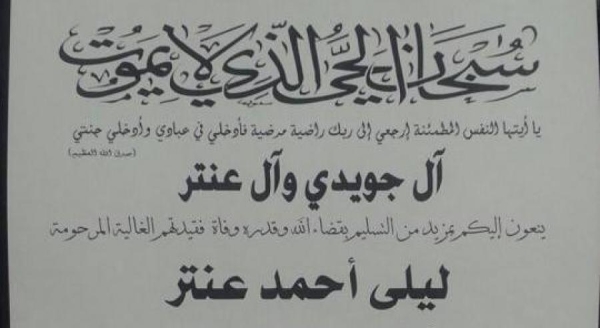 سبحان الحي الذي لا يموت
يا أيتها النفس المطمئنة إرجعي إلى ربك راضية مرضية فأدخلي في عبادي وأدخلي جنتي
(صدق الله العظيم)
آل جويدي وآل عنتر
ينعون إليكم بمزيد من التسليم بقضاء الله وقدره وفاة فقيدتهم الغالية المرحومة
ليلى أحمد عنتر